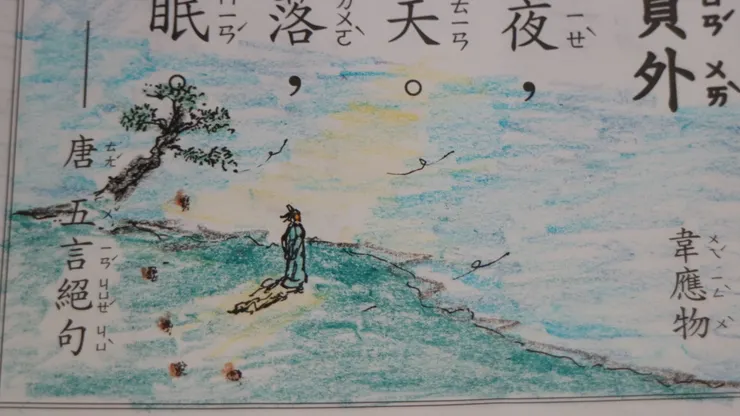 員外
ㄨㄞˋ
韋應物
ㄨㄟˊ ㄧㄥ ㄨˋ
夜，
ㄧㄝˋ
天。
ㄊㄧㄢ
落，
ㄌㄨㄛˋ
眠。
ㄇㄧㄢˊ
——唐 五言絕句
ㄊㄤˊ ㄨˇ ㄧㄢˊ ㄐㄩㄝˊ ㄐㄩˋ